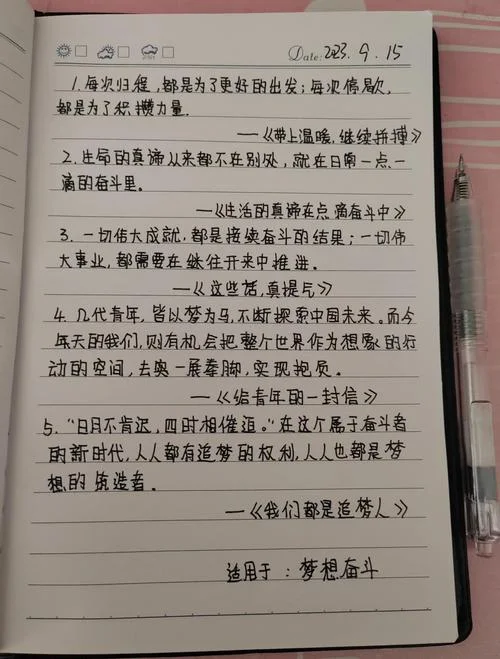 Date: 2023. 9. 15
1. 每次归程，都是为了更好的出发；每次停歇，
都是为了积攒力量.
—《带上温暖，继续拼搏》
2. 生命的真谛从来都不在别处，就在日常一点一
滴的奋斗里。
—《生活的真谛在点滴奋斗中》
3. 一切伟大成就，都是接续奋斗的结果；一切伟
大事业，都需要在继往开来中推进。
—《这些话，真提气》
4. 几代青年，皆以梦为马，不断探索中国未来。而今
年天的我们，则有机会把整个世界作为想象的行
动的空间，去奥一展拳脚，实现抱负。
—《给青年的一封信》
5. “日月不肯迟，四时相催迫。”在这个属于奋斗者
的新时代，人人都有追梦的权利，人人也都是梦
想的筑造者。
—《我们都是追梦人》
适用于：梦想奋斗